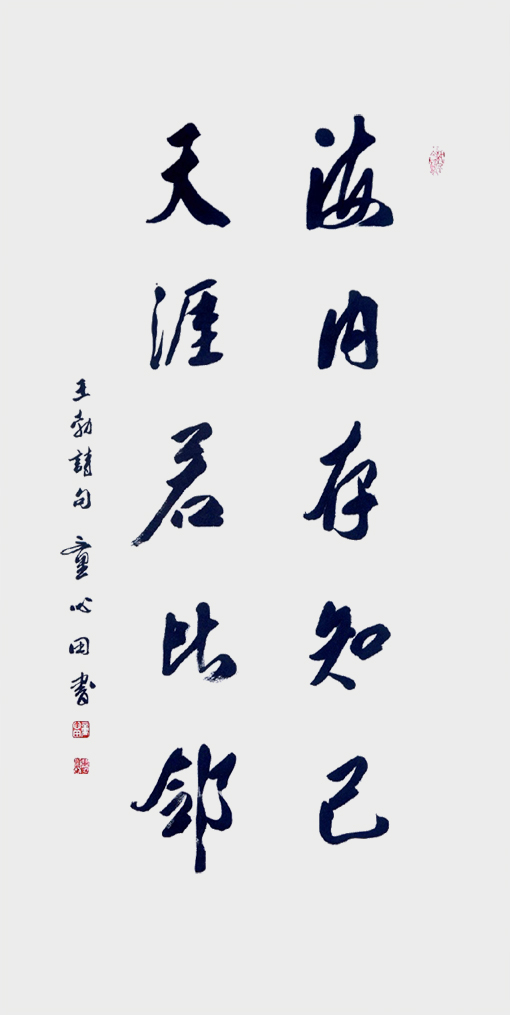 海内存知己
天涯若比邻
王勃诗句 童心田书